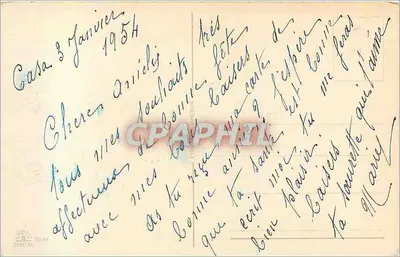 Casa 3 Janvier
1954
Chere Amielis
tous mes souhaits très
affectueux de bonne fête
avec mes baisers
as tu reçu ma carte de
bonne année ? J'espère
que ta santé est bonne
ecrit moi tu me feras
bien plaisir.
baisers
ta sourette qui t'aime
Marie
CPAPHIL